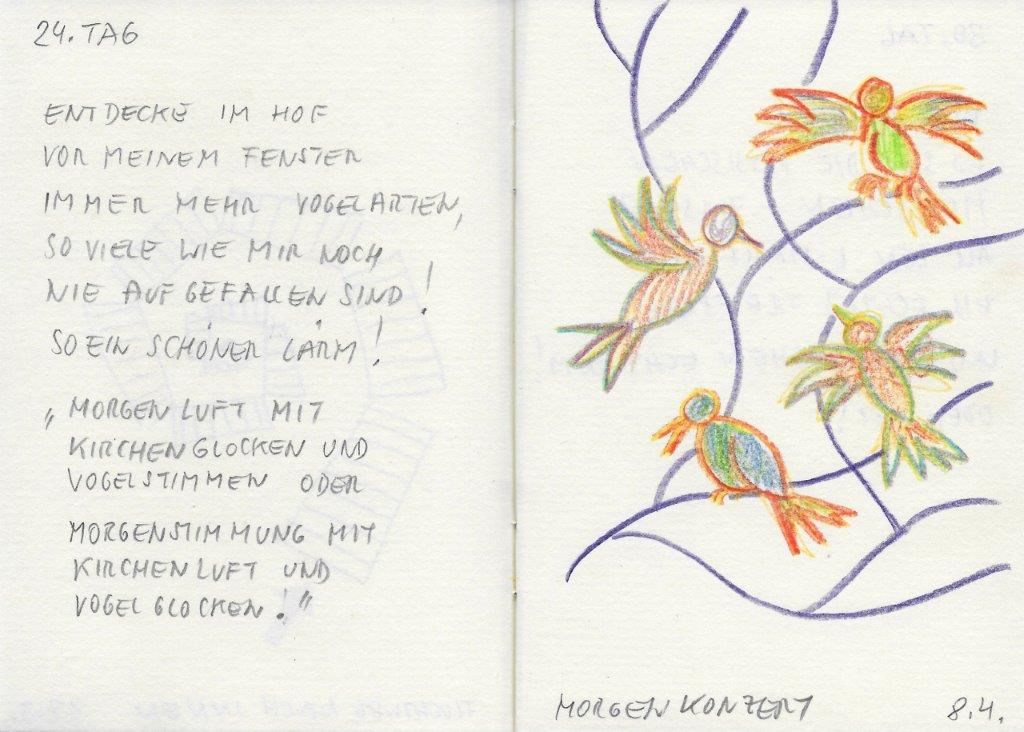 24. TAG
ENTDECKE IM HOF
VOR MEINEM FENSTER
IMMER MEHR VOGELARTEN,
SO VIELE WIE MIR NOCH
NIE AUFGEFALLEN SIND!
SO EIN SCHÖNER LÄRM!
„MORGENLUFT MIT
KIRCHENGLOCKEN UND
VOGELSTIMMEN ODER
MORGENSTIMMUNG MIT
KIRCHENLUFT UND
VOGELGLOCKEN!"
MORGENKONZERT 8.4.